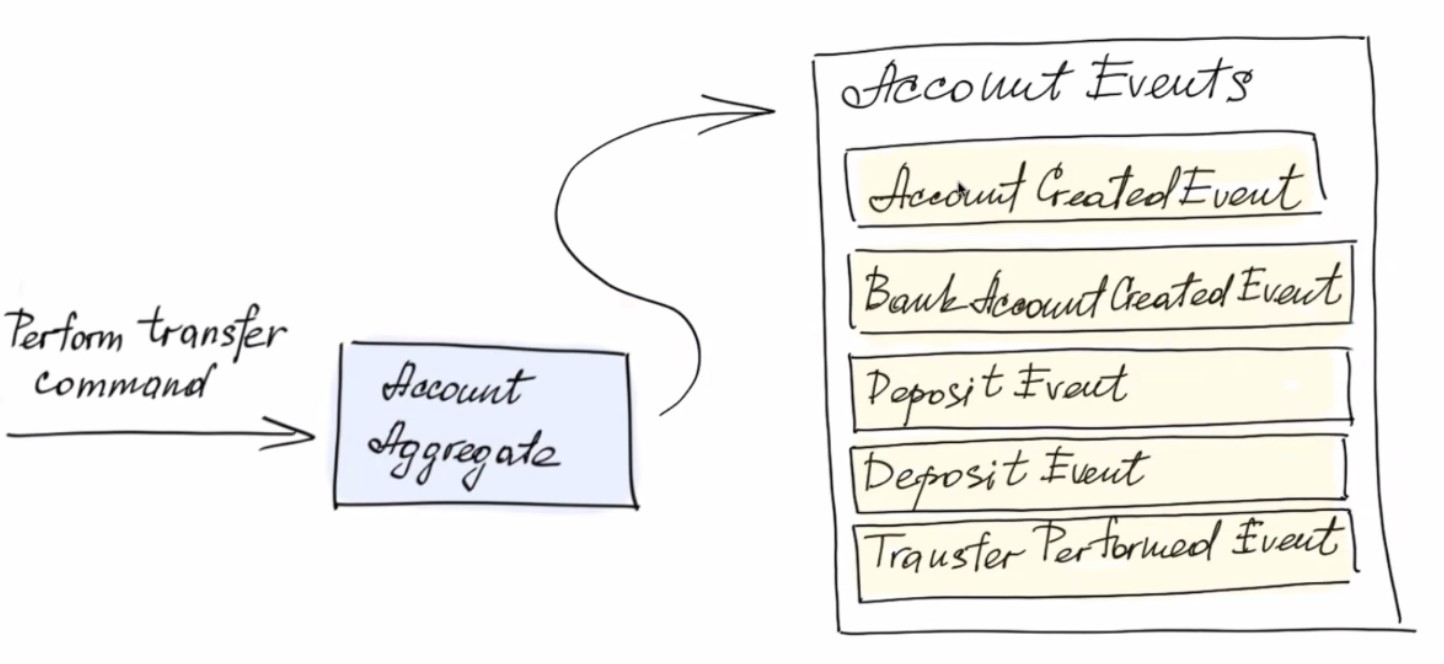 Perform transfer
command
Account
Aggregate
Account Events
Account Created Event
Bank Account Created Event
Deposit Event
Deposit Event
Transfer Performed Event